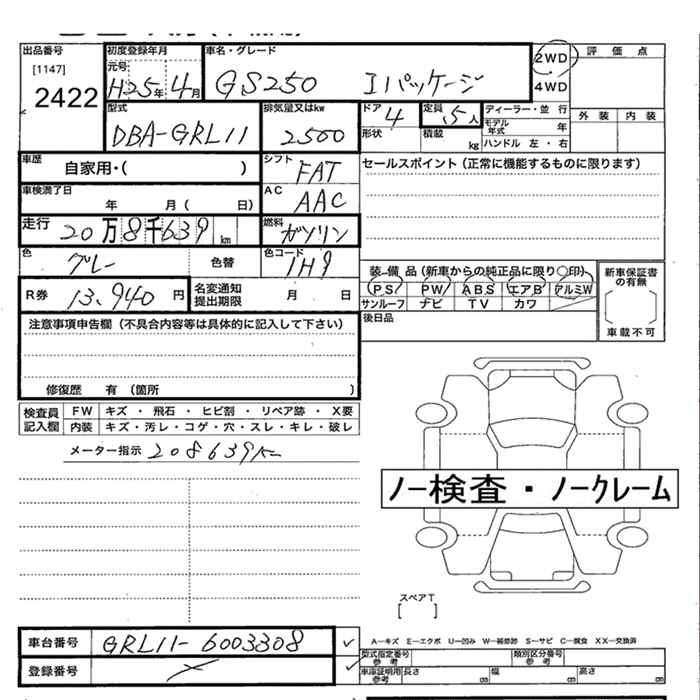 出品番号 初度登録年月 車名・グレード 2WD 評価点
[1147] 元号 H25年4月 GS250 Iパッケージ 4WD
2422 型式 排気量又はkw ドア 4 定員 5人 ディーラー・並行 外装 内装
DBA-GRL11 2500 形状 積載 kg モデル年式 年
ハンドル 左・右
車歴 自家用・( ) シフト FAT セールスポイント(正常に機能するものに限ります)
車検満了日 年 月( 日) AC AAC
走行 20万8千639km 燃料 ガソリン
色 グレー 色替 色コード 1H9 装備品(新車からの純正品に限り○印) 新車保証書の有無
R券 13,940円 名変通知提出期限 月 日 PS PW ABS エアB アルミW
サンルーフ ナビ TV カワ
注意事項申告欄(不具合内容等は具体的に記入して下さい) 後日品 車載不可
修復歴 有(箇所 )
検査員記入欄 FW キズ・飛石・ヒビ割・リペア跡・X要
内装 キズ・汚レ・コゲ・穴・スレ・キレ・破レ
メーター指示 208639㌔
ノー検査・ノークレーム
スペアT
[ ]
車台番号 GRL11-6003308 ✓ A-キズ E-エクボ U-凹み W-補修跡 S-サビ C-腐食 XX-交換済
登録番号 ✓ 型式指定番号 参考 類別区分番号 参考
車庫証明用 参考 長さ cm 幅 cm 高さ cm